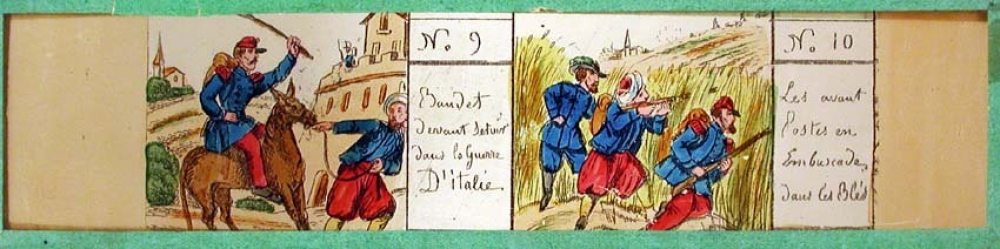 No 9
Baudet
devant servir
dans la Guerre
D'italie
No 10
Les avant
Postes en
Embuscade
dans les Blés